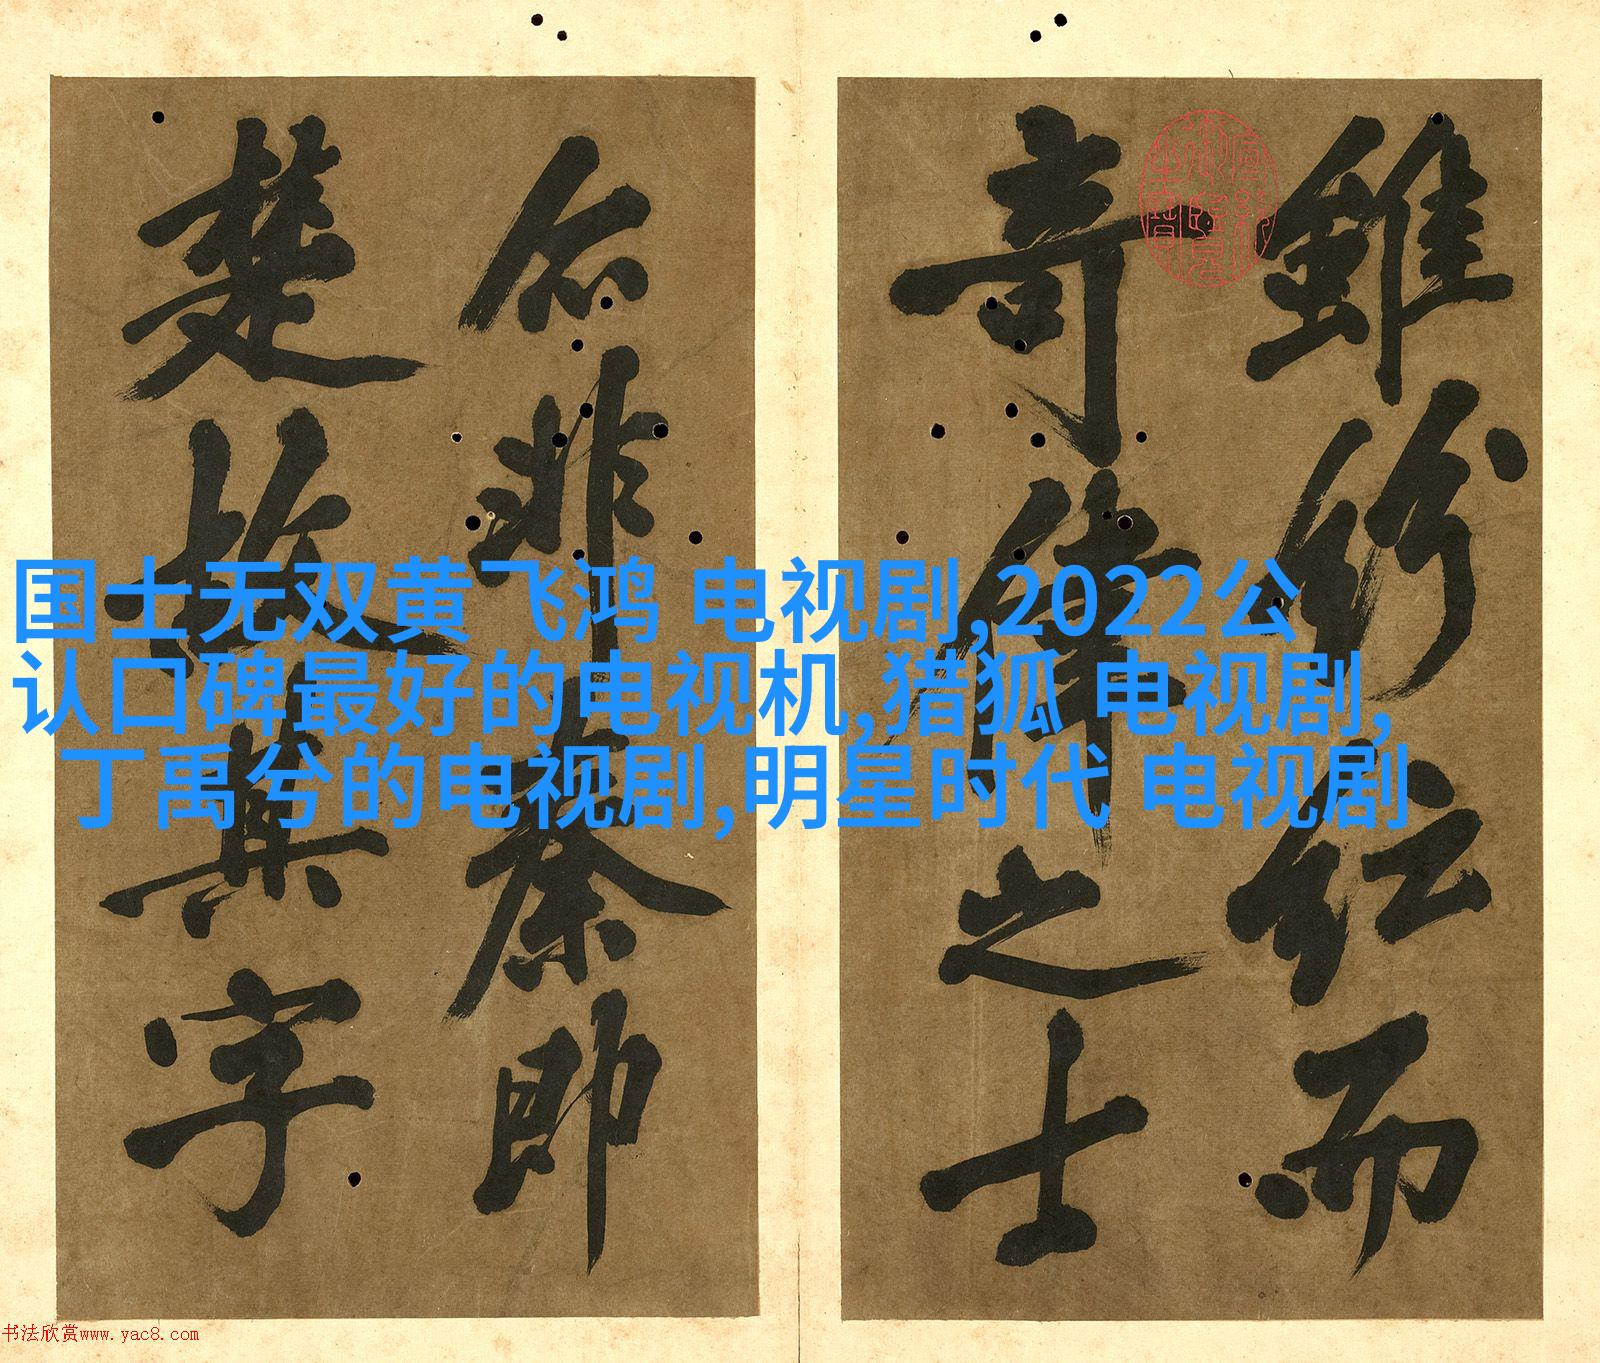 雖紛紜而
奇偉之士
非秦即
楚故其字
国士无双黄飞鸿 电视剧,2022公
认口碑最好的电视机,猎狐 电视剧,
丁禹兮的电视剧,明星时代 电视剧
书法欣赏www.yac8.com